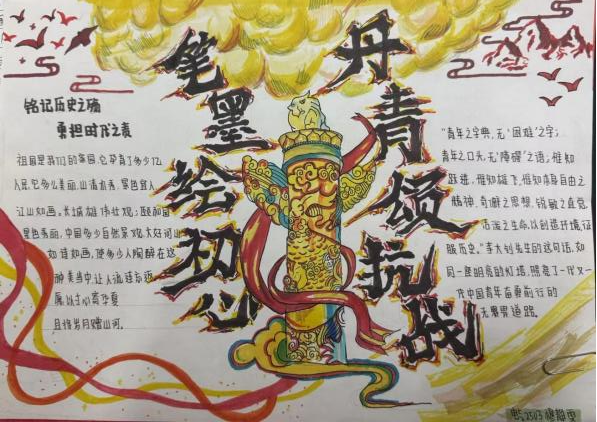 笔墨绘初心
丹青颂抗战
铭记历史之殇
勇担时代之责
祖国是我们的家园,它孕育了多少亿
人民,它多么美丽,山清水秀,景色宜人
江山如画。长城雄伟壮观;颐和园
景色秀丽,中国多少自然景观,大好河山
如诗如画,使多少人陶醉在这
种美当中,让人流连忘返
寄华夏
且待岁月赠山河。
"青年之字典,无"困难"之字;
青年之口头,无"障碍"之语;惟知
跃进,惟知雄飞,惟知本身自由之
精神,奇僻之思想,锐敏之直觉
活泼之生命,以创造环境,征
服历史。"李大钊先生的这句话,如
同一座明亮的灯塔,照亮了一代又一
代中国青年奋勇前行的
无畏界道路。
2503